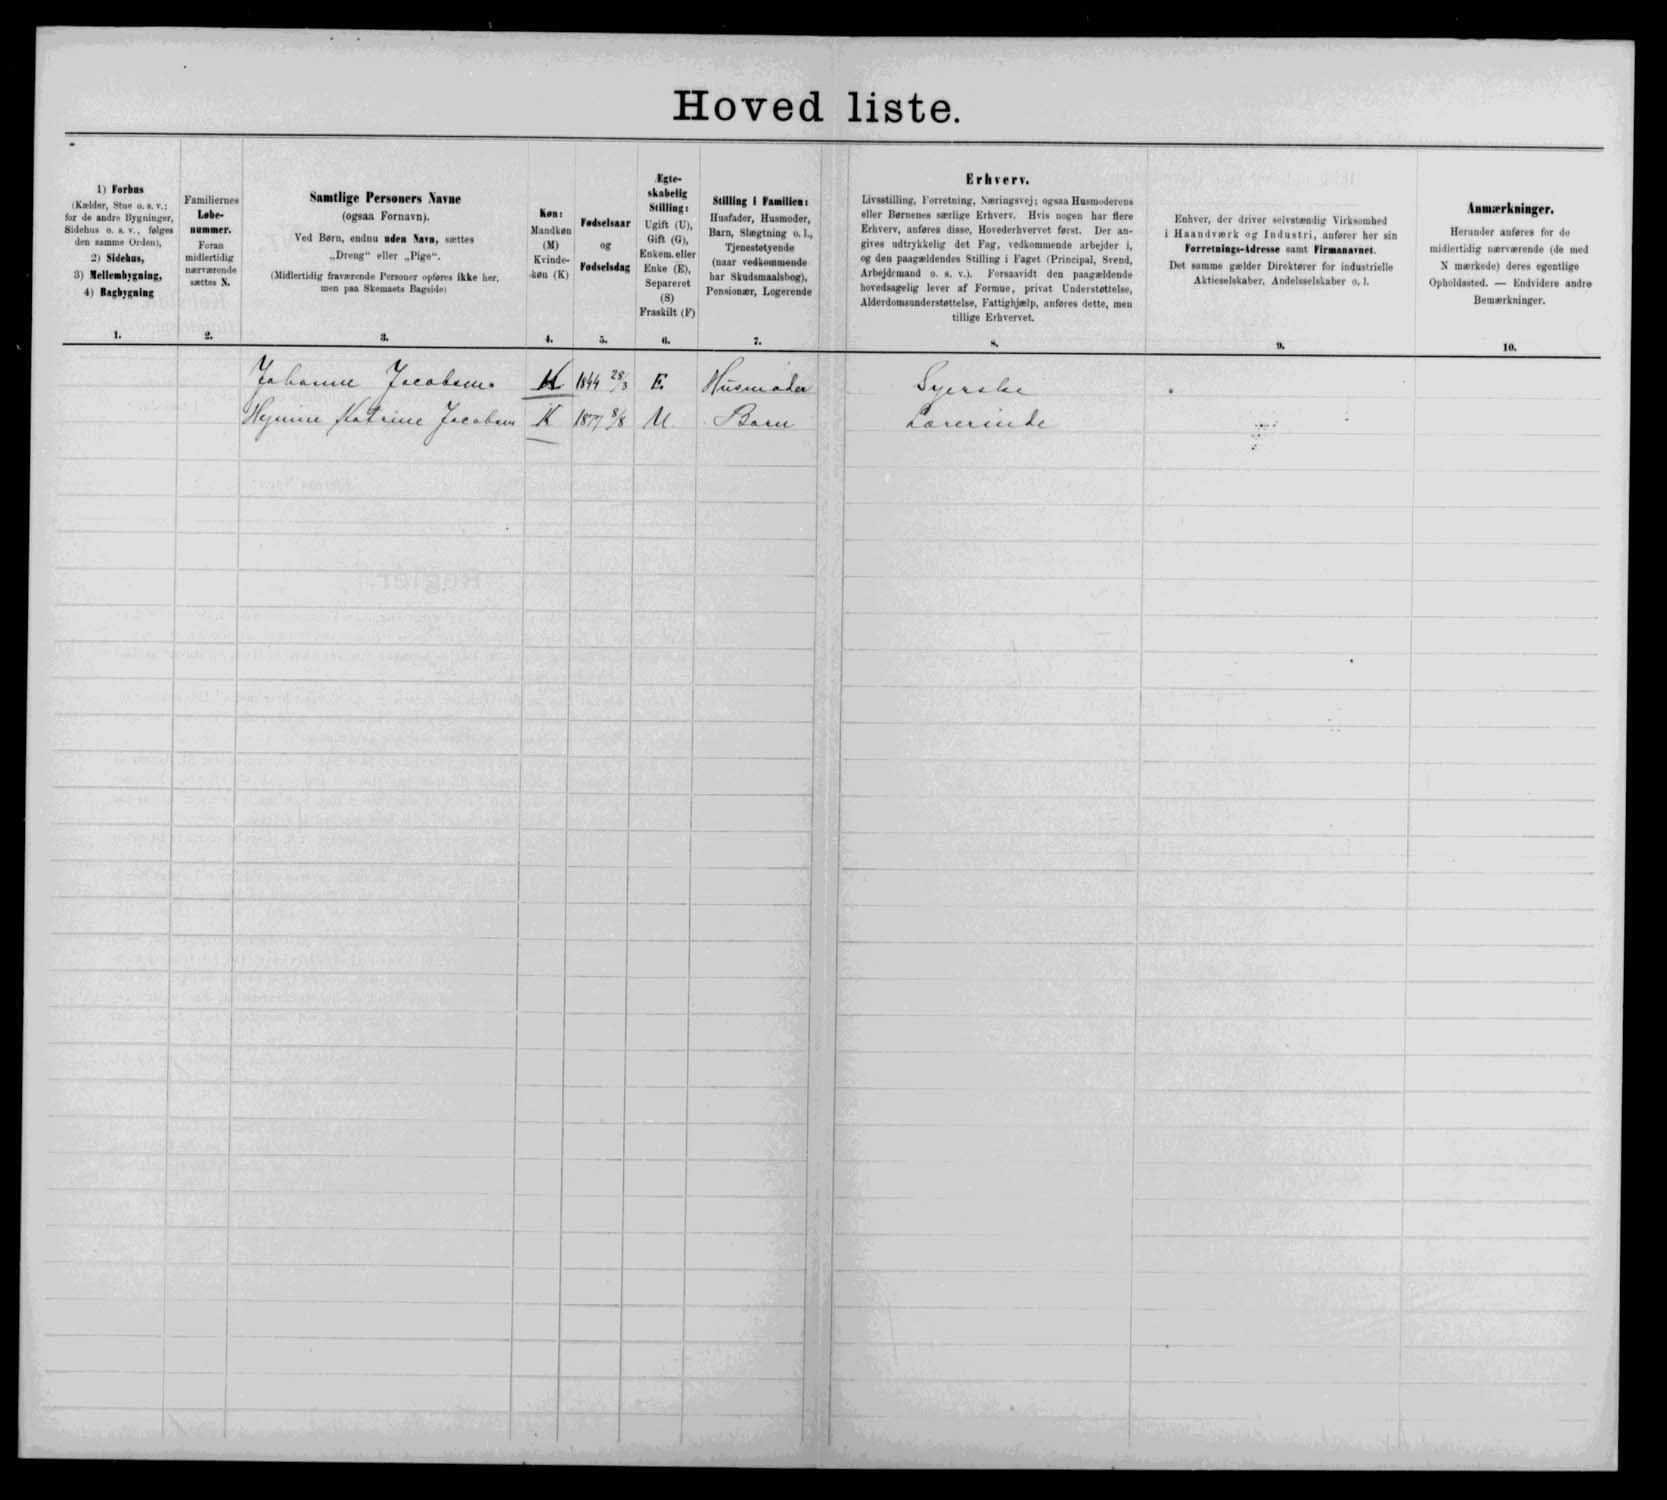 Hoved liste.
1) Forhus
(Kælder, Stue o. s. v.;
for de andre Bygninger,
Sidehus o. s. v., følges
den samme Orden),
2) Sidehus,
3) Mellembygning,
4) Bagbygning
1.
Familiernes
Løbe-
nummer.
Foran
midlertidig
nærværende
sættes N.
2.
Samtlige Personers Navne
(ogsaa Fornavn).
Ved Børn, endnu uden Navn, sættes
„Dreng“ eller „Pige“.
(Midlertidig fraværende Personer opføres ikke her,
men paa Skemaets Bagside)
3.
Køn:
Mandkøn
(M)
Kvinde-
køn (K)
4.
Fødselsaar
og
Fødselsdag
5.
Ægte-
skabelig
Stilling:
Ugift (U),
Gift (G),
Enkem. eller
Enke (E),
Separeret
(S)
Fraskilt (F)
6.
Stilling i Familien:
Husfader, Husmoder,
Barn, Slægtning o. l.,
Tjenestetyende
(naar vedkommende
har Skudsmaalsbog),
Pensionær, Logerende
7.
Erhverv.
Livsstilling, Forretning, Næringsvej; ogsaa Husmoderens
eller Børnenes særlige Erhverv. Hvis nogen har flere
Erhverv, anføres disse, Hovederhvervet først. Der an-
gives udtrykkelig det Fag, vedkommende arbejder i,
og den paagældendes Stilling i Faget (Principal, Svend,
Arbejdsmand o. s. v.). Forsaavidt den paagældende
hovedsagelig lever af Formue, privat Understøttelse,
Alderdomsunderstøttelse, Fattighjælp, anføres dette, men
tillige Erhvervet.
8.
Enhver, der driver selvstændig Virksomhed
i Haandværk og Industri, anfører her sin
Forretnings-Adresse samt Firmanavnet.
Det samme gælder Direktører for industrielle
Aktieselskaber, Andelsselskaber o. l.
9.
Anmærkninger.
Herunder anføres for de
midlertidig nærværende (de med
N mærkede) deres egentlige
Opholdssted. — Endvidere andre
Bemærkninger.
10.
Johanne Jacobsen K 1844 28/3 E. Husmoder Syerske
Katrine Jacobsen K 1877 8/8 U Barn Lærerinde